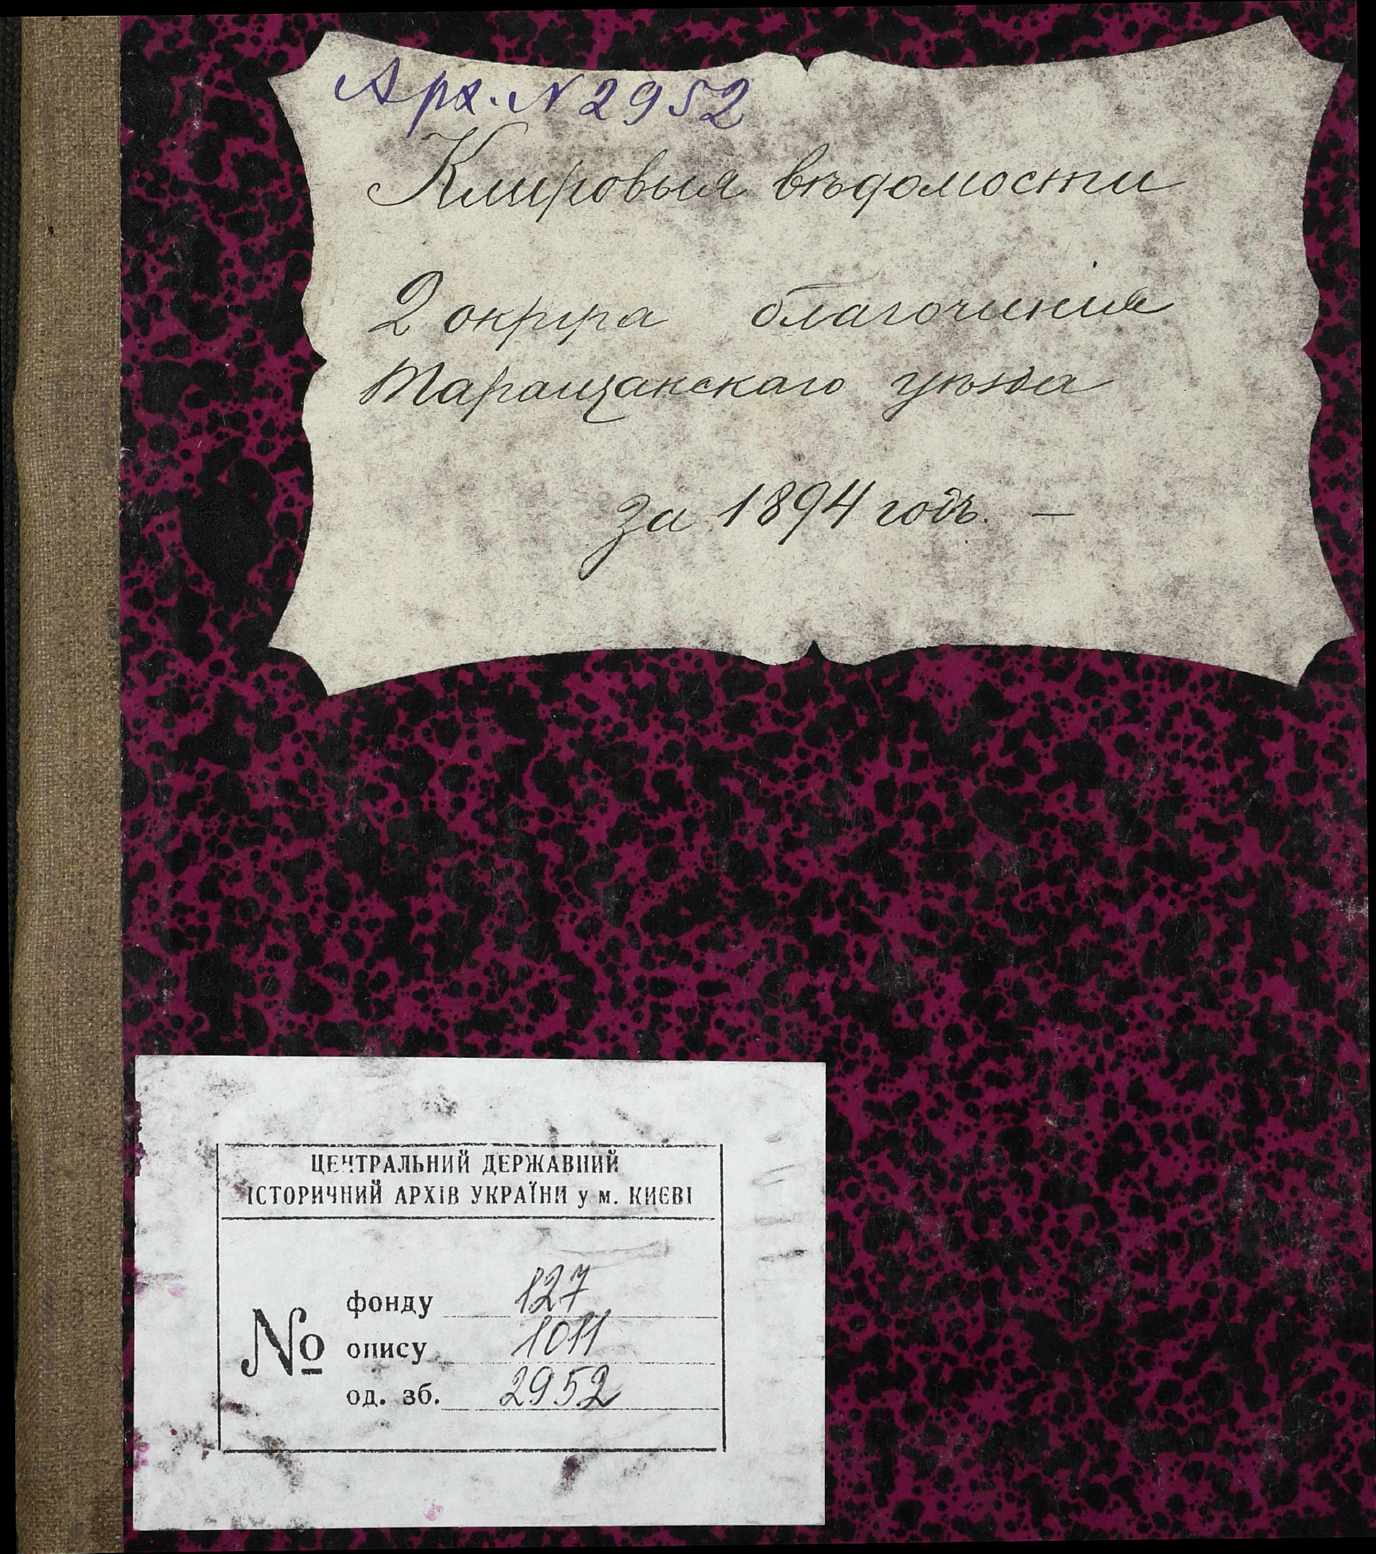 Арх. № 2952
Клировыя вѣдомости
2 округа благочинія
Таращанскаго уѣзда
за 1894 годъ. —
ЦЕНТРАЛЬНИЙ ДЕРЖАВНИЙ
ІСТОРИЧНИЙ АРХІВ УКРАЇНИ у м. КИЄВІ
№
фонду 127
опису 1011
од. зб. 2952